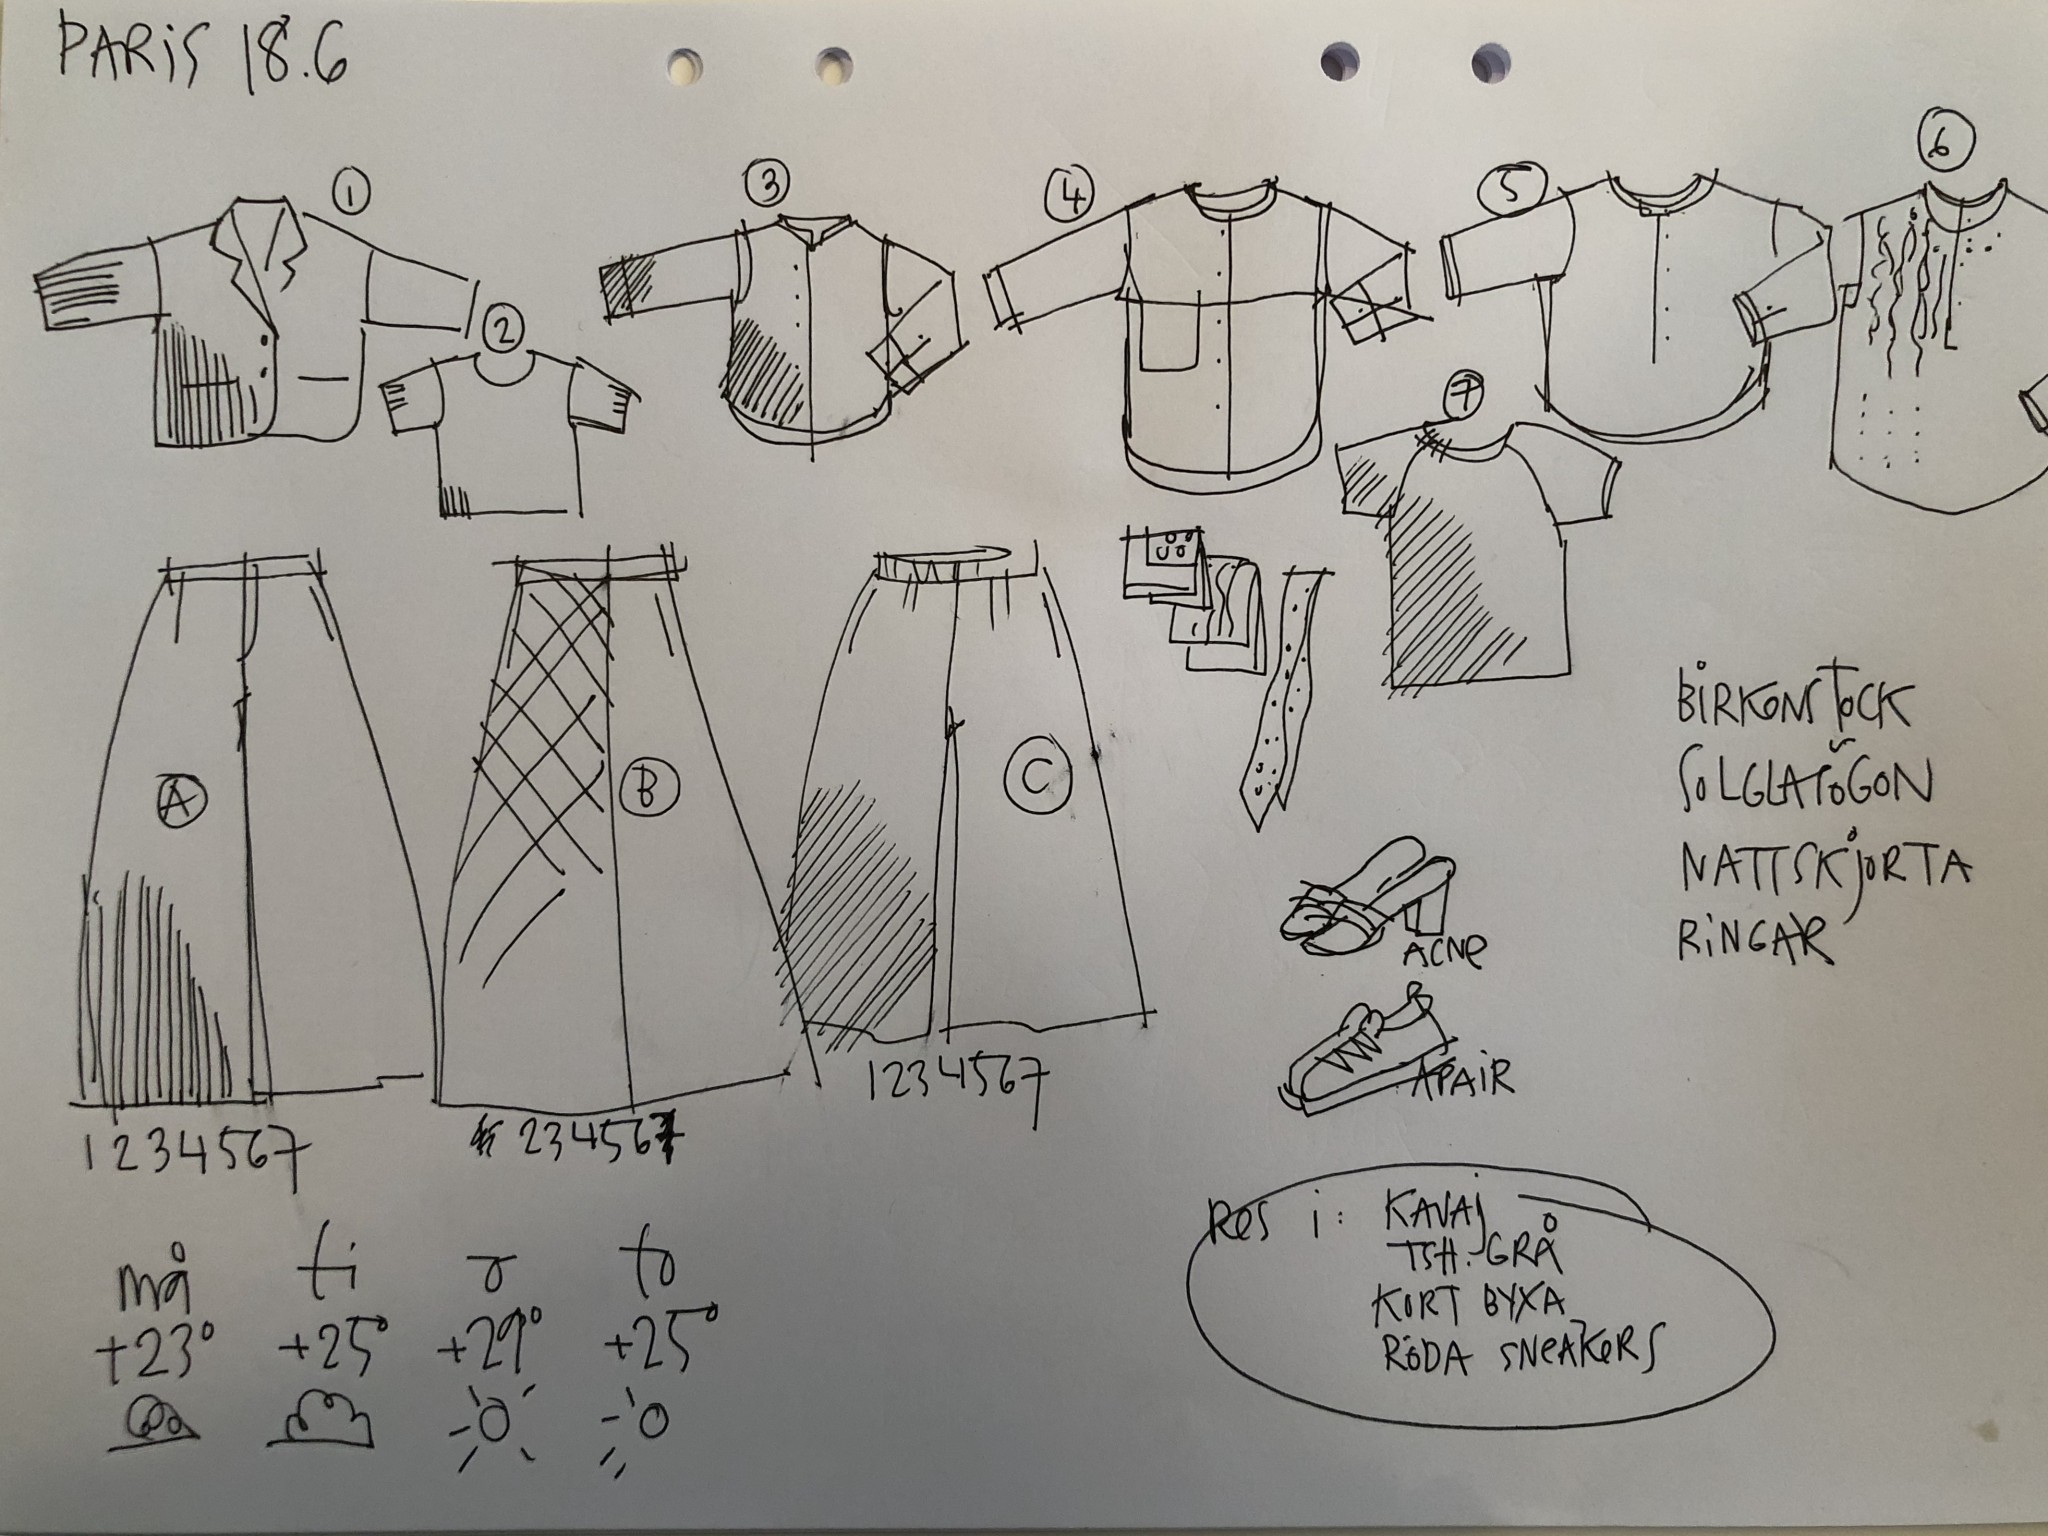 PARIS 18.6
1
2
3
4
5
6
7
A
B
C
1234567
234567
1234567
BIRKONSTOCK
SOLGLASÖGON
NATTSKJORTA
RINGAR
ACNE
APAIR
må
ti
o
to
+23°
+25°
+29°
+25°
RES i: KAVAJ
TSH. GRÅ
KORT BYXA
RÖDA SNEAKERS